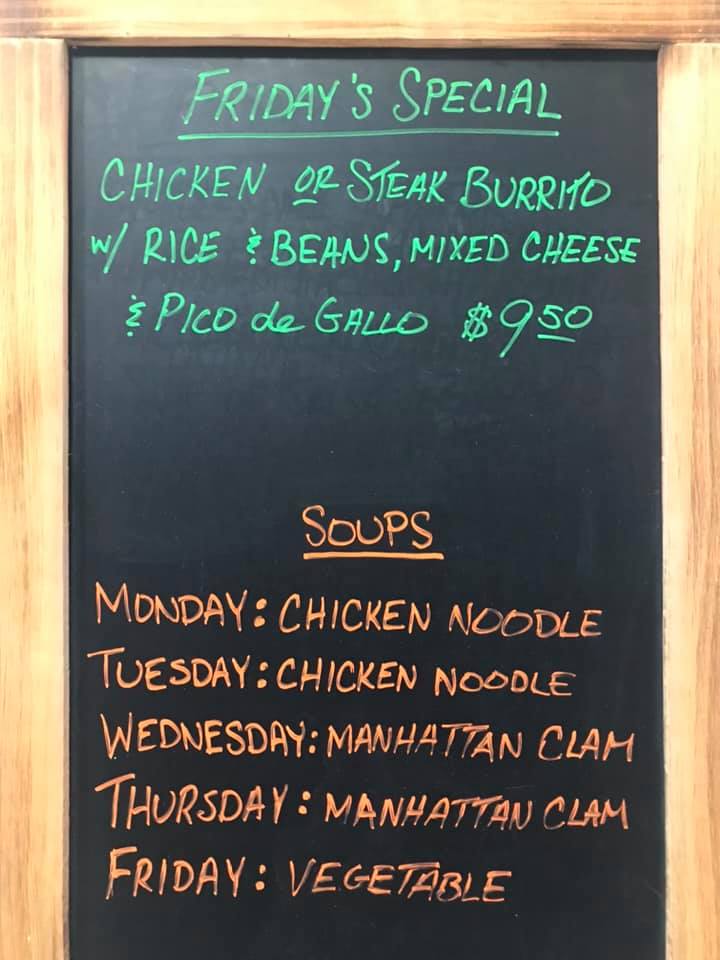 FRIDAY'S SPECIAL
CHICKEN OR STEAK BURRITO
W/ RICE & BEANS, MIXED CHEESE
& PICO de GALLO $9 50
SOUPS
MONDAY: CHICKEN NOODLE
TUESDAY: CHICKEN NOODLE
WEDNESDAY: MANHATTAN CLAM
THURSDAY: MANHATTAN CLAM
FRIDAY: VEGETABLE